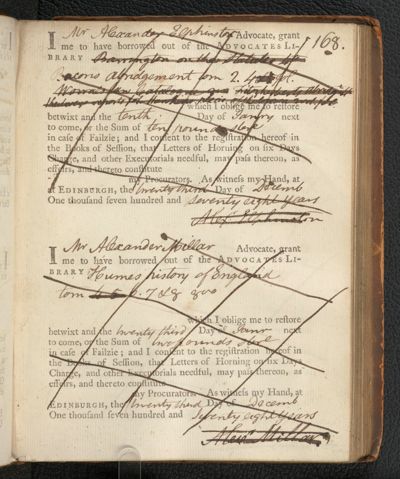 168.
I Mr Alexander Elphinston Advocate, grant
me to have borrowed out of the ADVOCATES LI-
BRARY Barrington on the Statutes 4to
Bacons abridgement tom 2. fol.
which I oblige me to restore
betwixt and the tenth Day of Janry next
to come, or the Sum of ten pounds Ster
in case of Failzie; and I consent to the registration hereof in
the Books of Session, that Letters of Horning on six Days
Charge, and other Executorials needful, may pass thereon, as
effeirs, and thereto constitute
my Procurators. As witness my Hand, at
EDINBURGH, the twenty third Day of Decemb
One thousand seven hundred and seventy eight years
Alexr Elphinston
I Mr Alexander Millar Advocate, grant
me to have borrowed out of the ADVOCATES LI-
BRARY Humes history of England
tom 7 & 8 8vo
which I oblige me to restore
betwixt and the twenty third Day of Janr next
to come, or the Sum of two pounds Ster
in case of Failzie; and I consent to the registration hereof in
the Books of Session, that Letters of Horning on six Days
Charge, and other Executorials needful, may pass thereon, as
effeirs, and thereto constitute
my Procurators. As witness my Hand, at
EDINBURGH, the twenty third Day of Decemb
One thousand seven hundred and seventy eight years
Alexr Millar